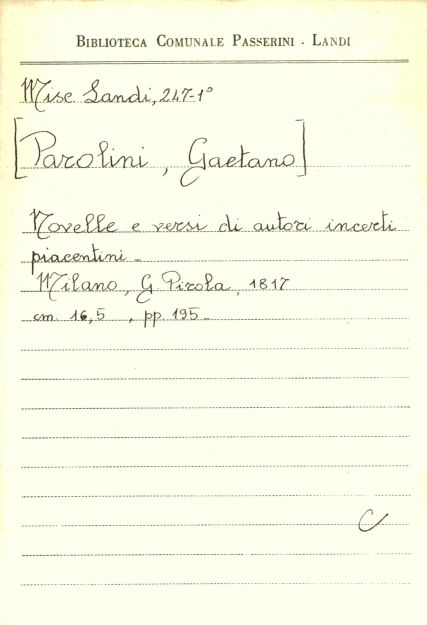 BIBLIOTECA COMUNALE PASSERINI - LANDI
Misc Landi, 247-1°
[Parolini, Gaetano]
Novelle e versi di autori incerti
piacentini -
Milano, G. Pirola, 1817
cm. 16,5 , pp. 195 -
C